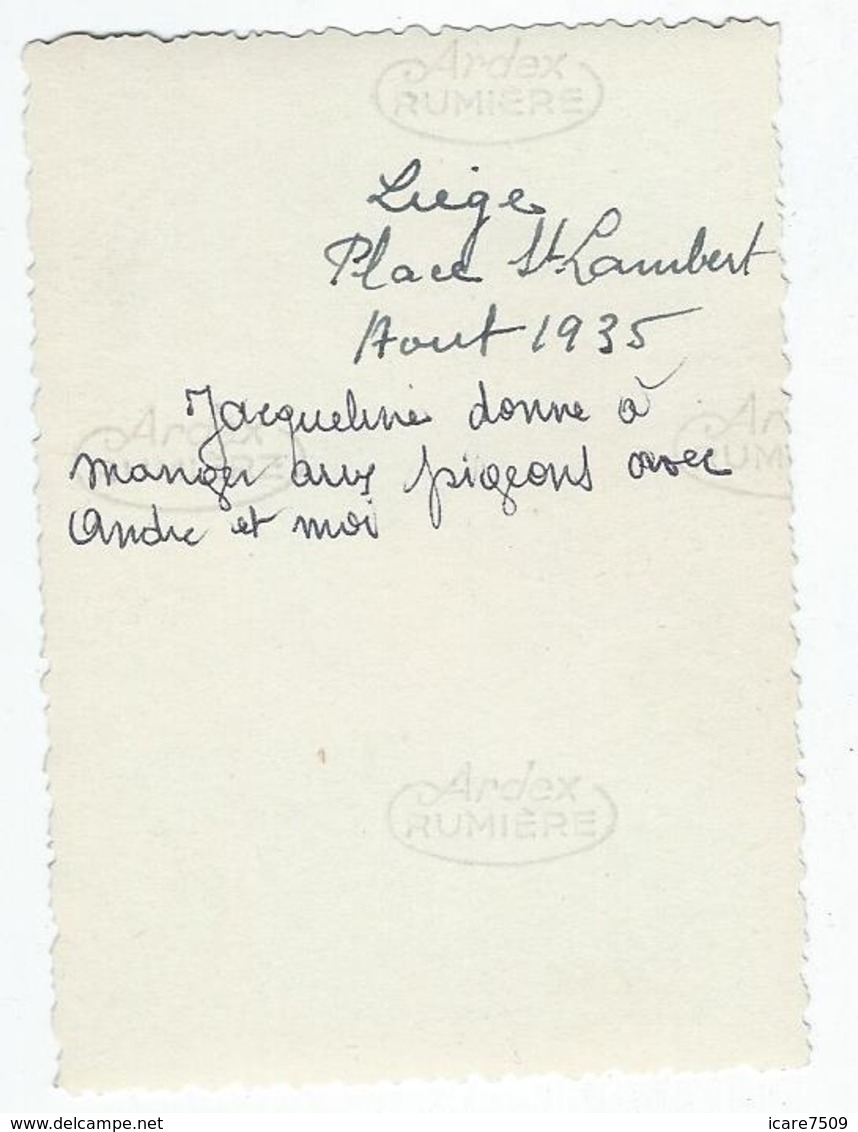 Ardex
RUMIÈRE
Liege
Place St Lambert
Aout 1935
Jacqueline donne à
manger aux pigeons avec
Andre et moi
Ardex
RUMIÈRE
Ar
UM
Ardex
RUMIÈRE
delcampe.net
icare7509